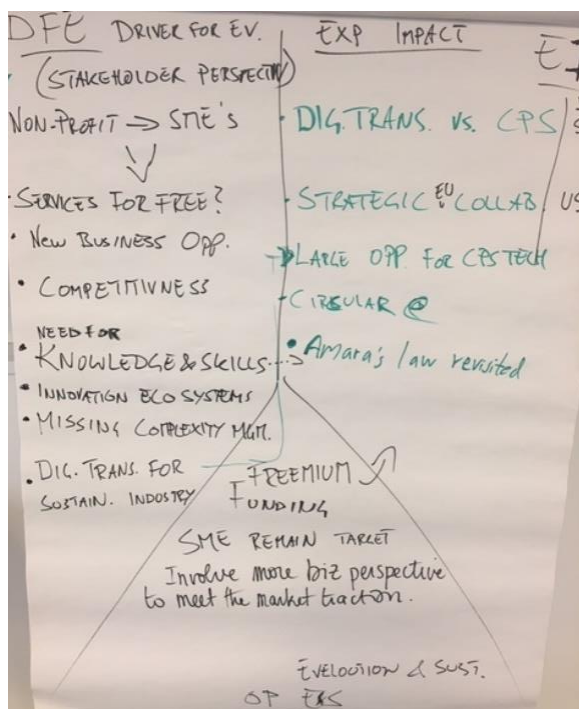 DFE DRIVER FOR EV.
(STAKEHOLDER PERSPECTIV)
NON-PROFIT → SME'S
• SERVICES FOR FREE?
• NEW BUSINESS OPP.
• COMPETITIVNESS
NEED FOR
• KNOWLEDGE & SKILLS
• INNOVATION ECO SYSTEMS
• MISSING COMPLEXITY MGM.
• DIG. TRANS. FOR
SUSTAIN. INDUSTRY
EXP IMPACT
• DIG. TRANS. vs. CPS
• STRATEGIC EU COLLAB
LARGE OPP. FOR CPS TECH
• CIRCULAR @
• Amara's law revisited
FREEMIUM
FUNDING
SME REMAIN TARGET
Involve more biz perspective
to meet the market traction.
EVELOUTION & SUST.
OP
US